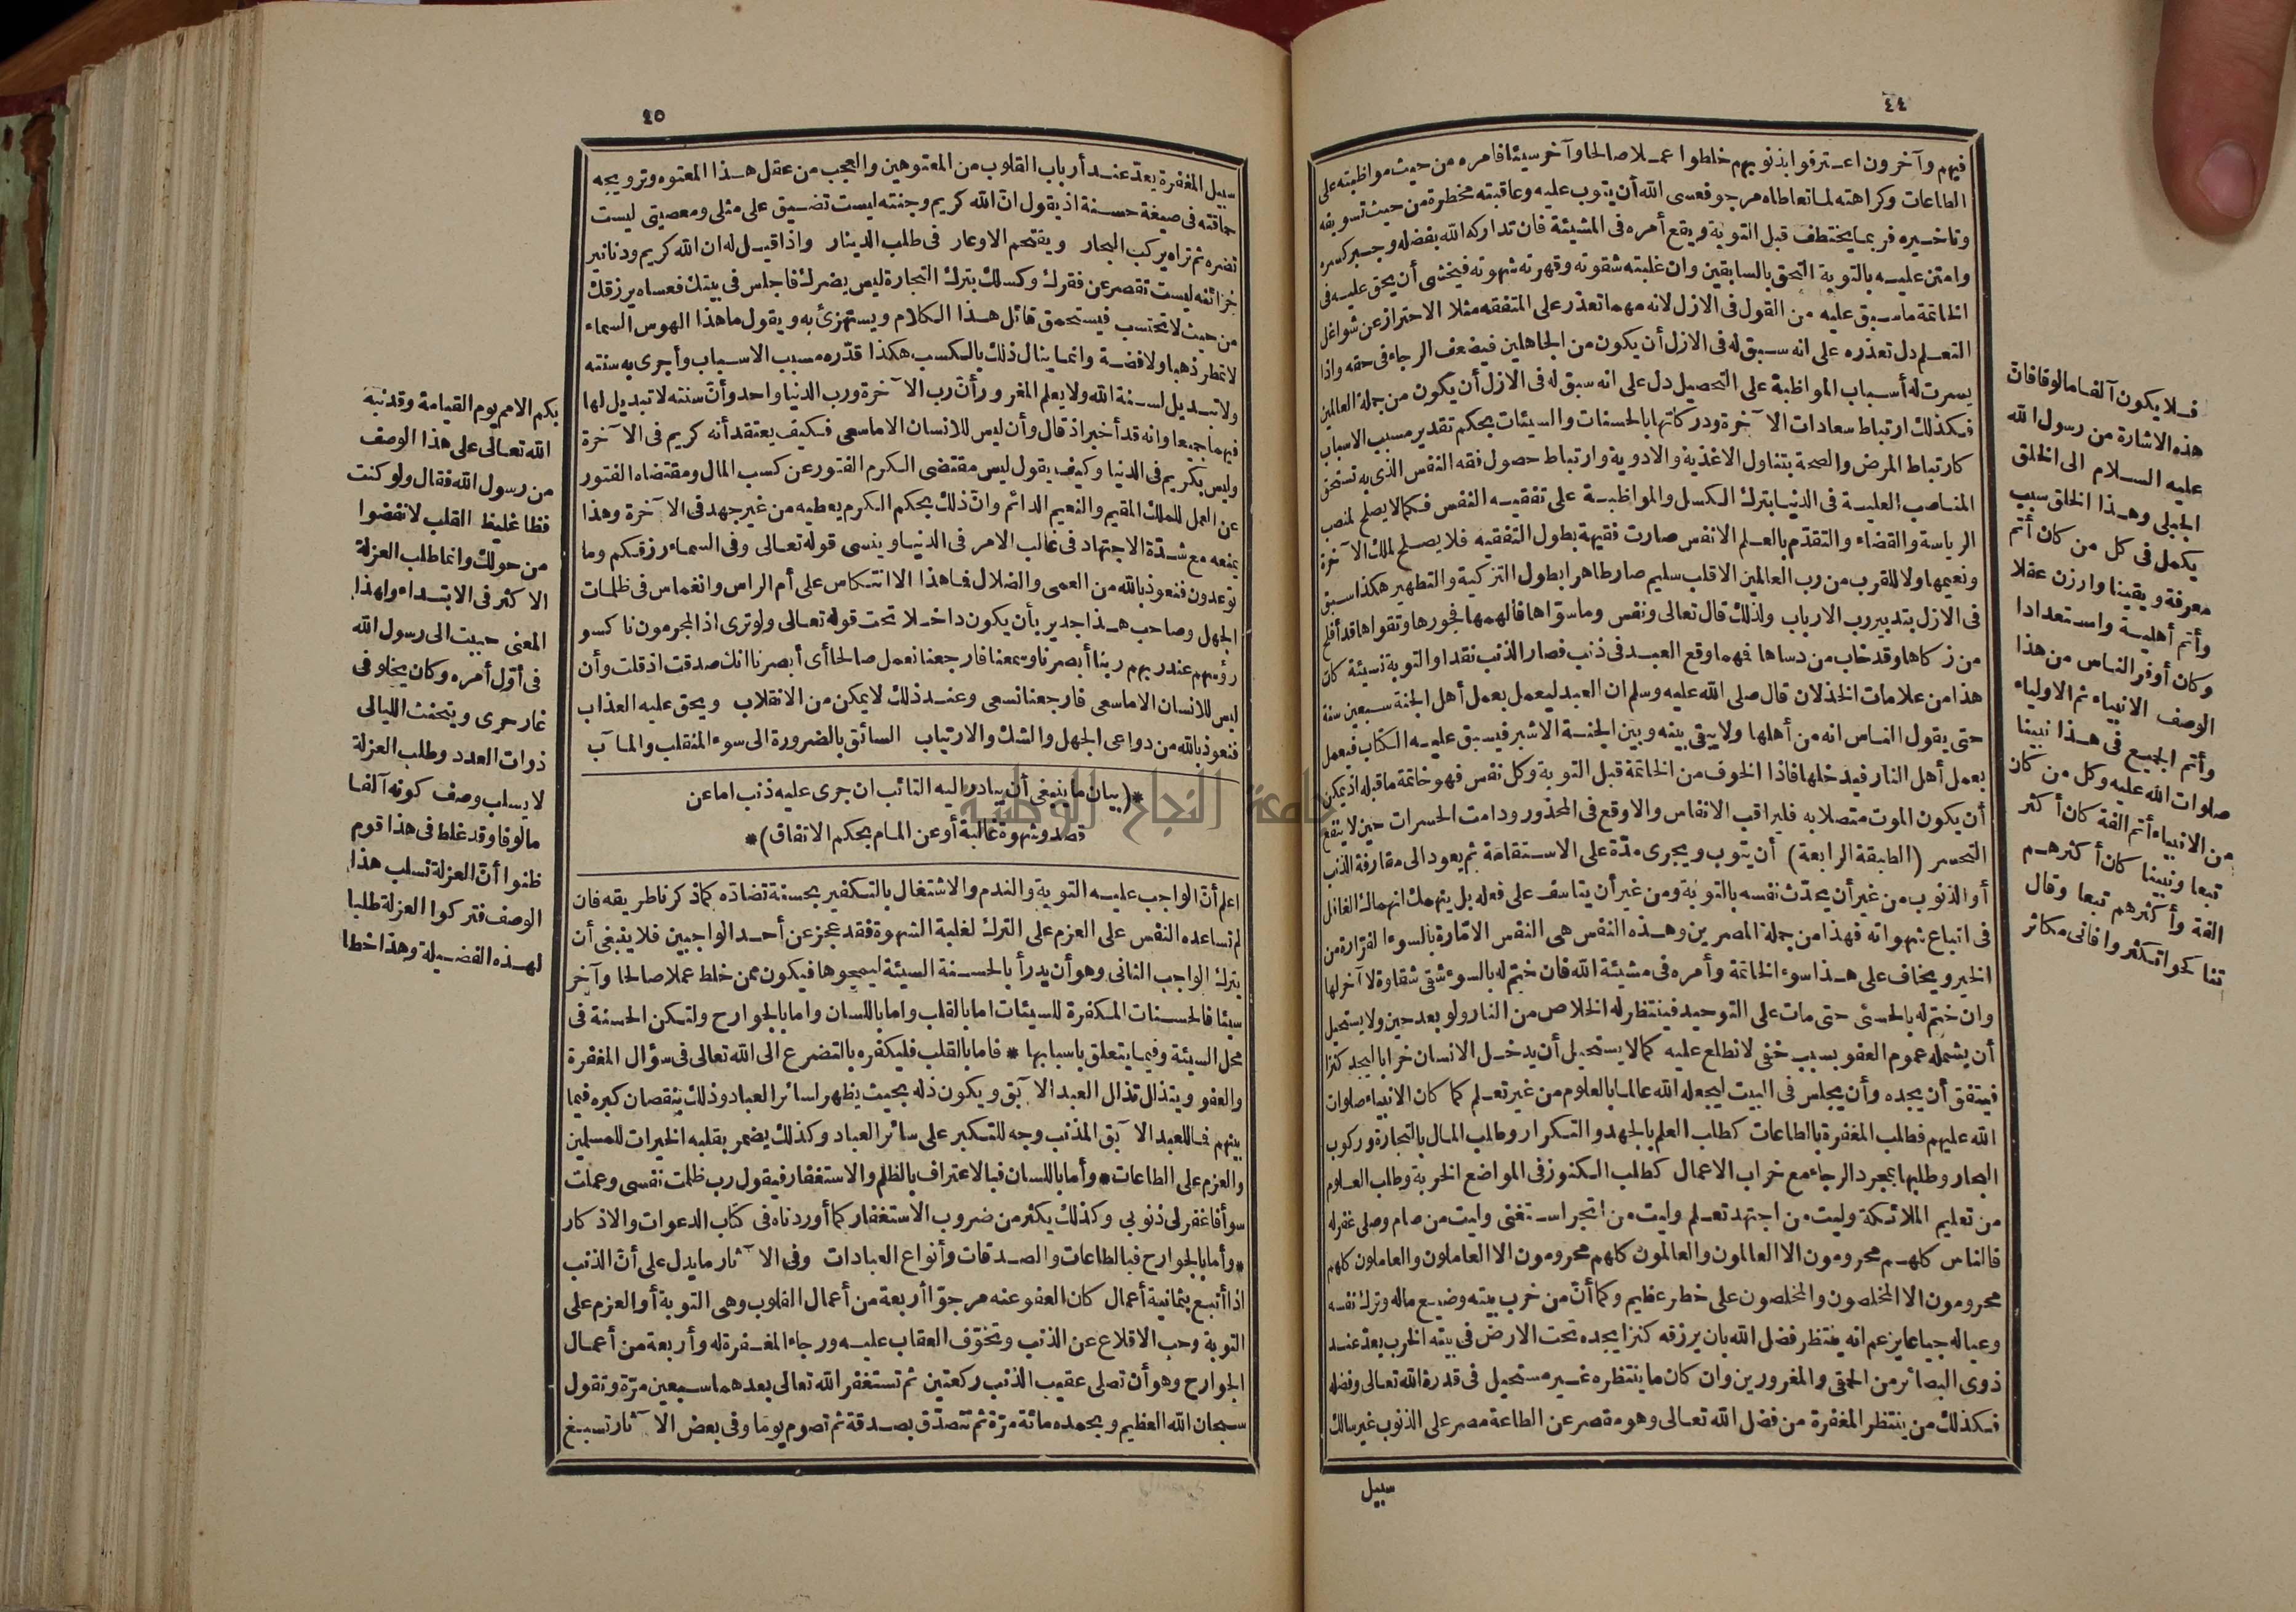 ٤٤
فيهم وآخرون اعترفوا بذنوبهم خلطوا عملا صالحا وآخر سيئا فامره من حيث مواظبته على
الطاعات وكراهته لما تعاطاه مرجو فعسى الله أن يتوب عليه وعاقبته مخطرة من حيث تسويفه
وتأخيره فربما يختطف قبل التوبة ويقع أمره فى المشيئة فان تداركه الله بفضله وجبر كسره
وامتن عليه بالتوبة التحق بالسابقين وان غلبته شقوته وقهرته شهوته فيخشى أن يحق عليه فى
الخاتمة ماسبق عليه من القول فى الازل لانه مهما تعذر على المتفقه مثلا الاحتراز عن شواغل
التعلم دل تعذره على انه سبق له فى الازل أن يكون من الجاهلين فيضعف الرجاء فى حقه واذا
يسرت له أسباب المواظبة على التحصيل دل على انه سبق له فى الازل أن يكون من جملة العالمين
فكذلك ارتباط سعادات الآخرة ودركاتها بالحسنات والسيئات بحكم تقدير مسبب الاسباب
كارتباط المرض والصحة بتناول الاغذية والادوية وارتباط حصول فقه النفس الذى به تستحق
المناصب العلية فى الدنيا بترك الكسل والمواظبة على تفقيه النفس فكما لا يصلح لمنصب
الرياسة والقضاء والتقدّم بالعلم الا نفس صارت فقيهة بطول التفقيه فلا يصلح لملك الآخرة
ونعيمها ولا للقرب من رب العالمين الا قلب سليم صار طاهرا بطول التزكية والتطهير هكذا سبق
فى الازل بتدبير رب الارباب ولذلك قال تعالى ونفس وما سوّاها فألهمها فجورها وتقواها قد أفلح
من زكاها وقد خاب من دساها فمهما وقع العبد فى ذنب فصار الذنب نقدا والتوبة نسيئة كان
هذا من علامات الخذلان قال صلى الله عليه وسلم ان العبد ليعمل بعمل أهل الجنة سبعين سنة
حتى يقول الناس انه من أهلها ولا يبقى بينه وبين الجنة الا شبر فيسبق عليه الكتاب فيعمل
بعمل أهل النار فيدخلها فاذا الخوف من الخاتمة قبل التوبة وكل نفس فهو خاتمة ما قبله اذ يمكن
أن يكون الموت متصلا به فليراقب الانفاس والا وقع فى المحذور ودامت الحسرات حين لا ينفع
التحسر (الطبقة الرابعة) أن يتوب ويجرى مدّة على الاستقامة ثم يعود الى مقارفة الذنب
أو الذنوب من غير أن يحدّث نفسه بالتوبة ومن غير أن يتأسف على فعله بل ينهمك انهماك الغافل
فى اتباع شهواته فهذا من جملة المصرين وهذه النفس هى النفس الامّارة بالسوء الفرّارة من
الخير ويخاف على هذا سوء الخاتمة وأمره فى مشيئة الله فان ختم له بالسوء شقى شقاوة لا آخر لها
وان ختم له بالحسنى حتى مات على التوحيد فينتظر له الخلاص من النار ولو بعد حين ولا يستحيل
أن يشمله عموم العفو بسبب خفى لا نطلع عليه كما لا يستحيل أن يدخل الانسان خرابا ليجد كنزا
فيتفق أن يجده وأن يجلس فى البيت ليجعله الله عالما بالعلوم من غير تعلم كما كان الانبياء صلوات
الله عليهم فطلب المغفرة بالطاعات كطلب العلم بالجهد والتكرار وطلب المال بالتجارة وركوب
البحار وطلبها بمجرد الرجاء مع خراب الاعمال كطلب الكنوز فى المواضع الخربة وطلب العلوم
من تعليم الملائكة وليت من اجتهد تعلم وليت من اتجر استغنى وليت من صام وصلى غفر له
فالناس كلهم محرومون الا العالمون والعالمون كلهم محرومون الا العاملون والعاملون كلهم
محرومون الا المخلصون والمخلصون على خطر عظيم وكما أنّ من خرب بيته وضيع ماله وترك نفسه
وعياله جياعا يزعم انه ينتظر فضل الله بان يرزقه كنزا يجده تحت الارض فى بيته الخرب يعدّ عند
ذوى البصائر من الحمقى والمغرورين وان كان ما ينتظره غير مستحيل فى قدرة الله تعالى وفضله
فكذلك من ينتظر المغفرة من فضل الله تعالى وهو مقصر عن الطاعة مصر على الذنوب غير سالك
سبيل
فلا يكون آلفا مالوفا فان
هذه الاشارة من رسول الله
عليه السلام الى الخلق
الجبلى وهذا الخلق سبب
يكمل فى كل من كان أتم
معرفة ويقينا وارزن عقلا
وأتم أهلية واستعدادا
وكان أوفر الناس من هذا
الوصف الانبياء ثم الاولياء
وأتم الجميع فى هذا نبينا
صلوات الله عليه وكل من كان
من الانبياء أتم الفة كان أكثر
تبعا ونبينا كان أكثرهم
الفة وأكثرهم تبعا وقال
تناكحوا تكثروا فانى مكاثر
٤٥
سبيل المغفرة يعدّ عند أرباب القلوب من المعتوهين والعجب من عقل هذا المعتوه وترويجه
حماقته فى صيغة حسنة اذ يقول انّ الله كريم وجنته ليست تضيق على مثلى ومعصيتى ليست
تضره ثم تراه يركب البحار ويقتحم الاوعار فى طلب الدينار واذا قيل له ان الله كريم ودنانير
خزائنه ليست تقصر عن فقرك وكسلك بترك التجارة ليس يضرك فاجلس فى بيتك فعساه يرزقك
من حيث لا تحتسب فيستحمق قائل هذا الكلام ويستهزئ به ويقول ما هذا الهوس السماء
لا تمطر ذهبا ولا فضة وانما ينال ذلك بالكسب هكذا قدّره مسبب الاسباب وأجرى به سنته
ولا تبديل لسنة الله ولا يعلم المغرور أنّ رب الآخرة ورب الدنيا واحد وأنّ سنته لا تبديل لها
فيهما جميعا وانه قد أخبر اذ قال وأن ليس للانسان الا ما سعى فكيف يعتقد أنه كريم فى الآخرة
وليس بكريم فى الدنيا وكيف يقول ليس مقتضى الكرم الفتور عن كسب المال ومقتضاه الفتور
عن العمل للملك المقيم والنعيم الدائم وانّ ذلك بحكم الكرم يعطيه من غير جهد فى الآخرة وهذا
يمنعه مع شدّة الاجتهاد فى غالب الامر فى الدنيا وينسى قوله تعالى وفى السماء رزقكم وما
توعدون فنعوذ بالله من العمى والضلال فما هذا الا انتكاس على أم الراس وانغماس فى ظلمات
الجهل وصاحب هذا جدير بأن يكون داخلا تحت قوله تعالى ولو ترى اذ المجرمون ناكسو
رؤسهم عند ربهم ربنا أبصرنا وسمعنا فارجعنا نعمل صالحا أى أبصرنا انك صدقت اذ قلت وأن
ليس للانسان الا ما سعى فارجعنا نسعى وعند ذلك لا يمكن من الانقلاب ويحق عليه العذاب
فنعوذ بالله من دواعى الجهل والشك والارتياب السائق بالضرورة الى سوء المنقلب والمآب
*(بيان ما ينبغى أن يبادر اليه التائب ان جرى عليه ذنب اما عن
قصد وشهوة غالبة أو عن المام بحكم الاتفاق)*
اعلم أنّ الواجب عليه التوبة والندم والاشتغال بالتكفير بحسنة تضادّه كما ذكرنا طريقه فان
لم تساعده النفس على العزم على الترك لغلبة الشهوة فقد عجز عن أحد الواجبين فلا ينبغى أن
يترك الواجب الثانى وهو أن يدرأ بالحسنة السيئة ليمحوها فيكون ممن خلط عملا صالحا وآخر
سيئا فالحسنات المكفرة للسيئات اما بالقلب واما باللسان واما بالجوارح ولتكن الحسنة فى
محل السيئة وفيما يتعلق باسبابها * فاما بالقلب فليكفره بالتضرع الى الله تعالى فى سؤال المغفرة
والعفو ويتذلل تذلل العبد الآبق ويكون ذله بحيث يظهر لسائر العباد وذلك بنقصان كبره فيما
بينهم فما للعبد الآبق المذنب وجه للتكبر على سائر العباد وكذلك يضمر بقلبه الخيرات للمسلمين
والعزم على الطاعات * وأما باللسان فبالاعتراف بالظلم والاستغفار فيقول رب ظلمت نفسى وعملت
سوأ فاغفر لى ذنوبى وكذلك يكثر من ضروب الاستغفار كما أوردناه فى كتاب الدعوات والاذكار
* وأما بالجوارح فبالطاعات والصدقات وأنواع العبادات وفى الآثار ما يدل على أنّ الذنب
اذا أتبع بثمانية أعمال كان العفو عنه مرجوّا أربعة من أعمال القلوب وهى التوبة أو العزم على
التوبة وحب الاقلاع عن الذنب وتخوّف العقاب عليه ورجاء المغفرة له وأربعة من أعمال
الجوارح وهو أن تصلى عقيب الذنب ركعتين ثم تستغفر الله تعالى بعدهما سبعين مرّة وتقول
سبحان الله العظيم وبحمده مائة مرّة ثم تتصدّق بصدقة ثم تصوم يوما وفى بعض الآثار تسبغ
بكم الامم يوم القيامة وقد نبه
الله تعالى على هذا الوصف
من رسول الله فقال ولو كنت
فظا غليظ القلب لانفضوا
من حولك وانما طلب العزلة
الاكثر فى الابتداء ولهذا
المعنى حببت الى رسول الله
فى أوّل أمره وكان يخلو فى
غار حرى ويتحنث الليالى
ذوات العدد وطلب العزلة
لا يسلب وصف كونه آلفا
مالوفا وقد غلط فى هذا قوم
ظنوا أنّ العزلة تسلب هذا
الوصف فتركوا العزلة طلبا
لهذه الفضيلة وهذا خطا
جامعة النجاح الوطنية